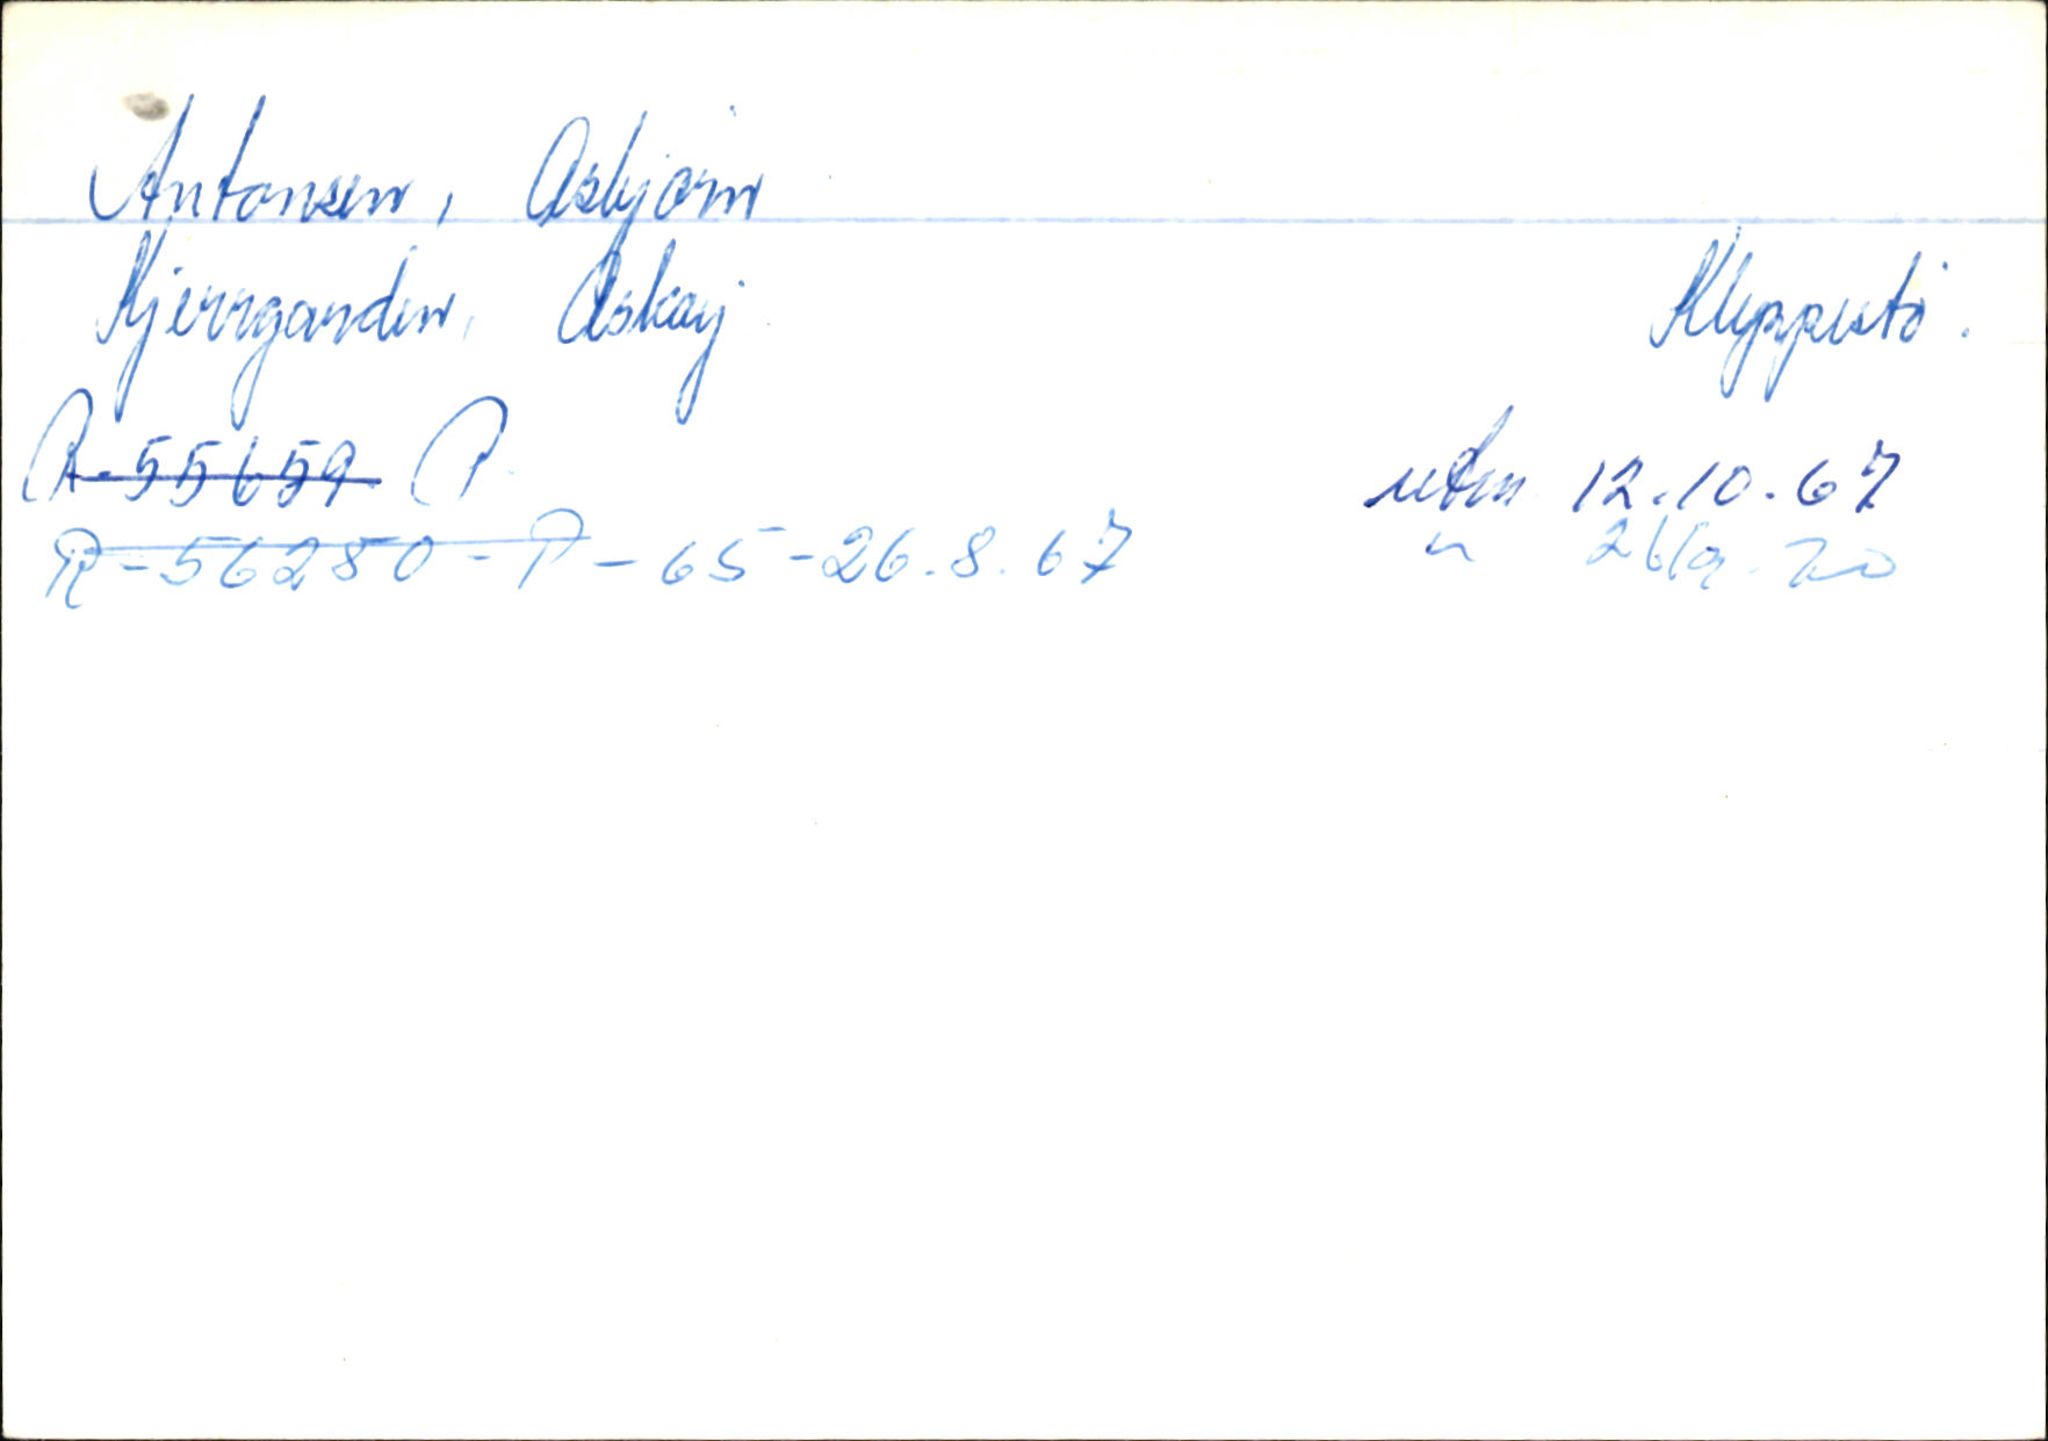 Antonsen, Asbjörn
Kjerrgarden, Askøy Kleppestö.
R-55659 P. utm 12.10.67
R-56280-P-65-26.8.67 " 26/9.70